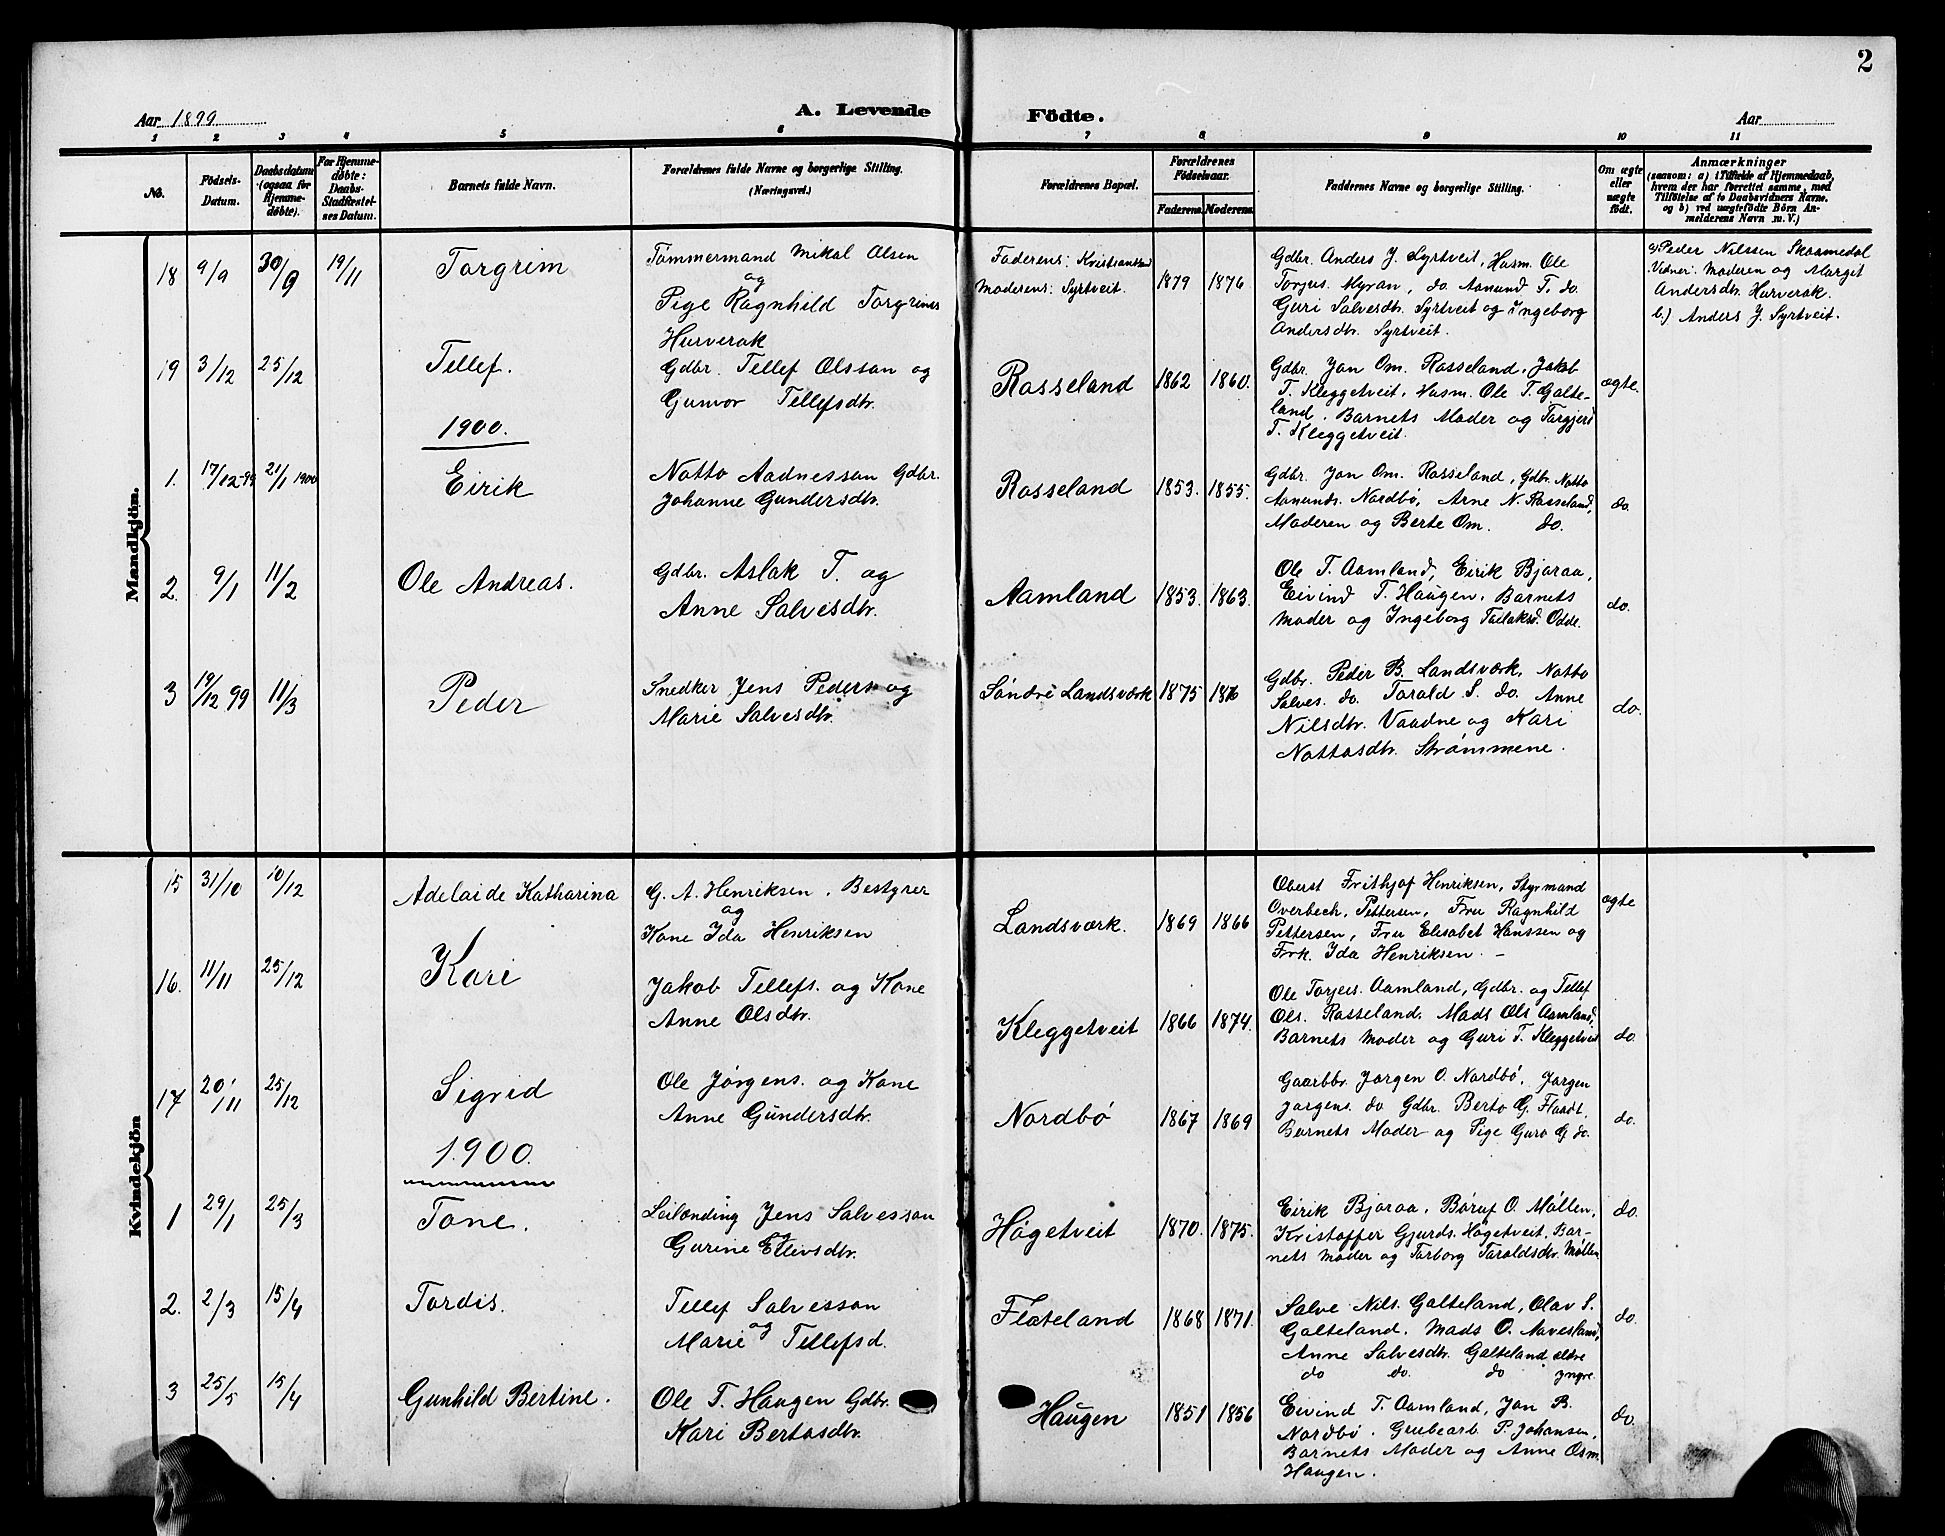 2
Aar 1899
A. Levende Födte.
Aar
1 2 3 4 5 6 7 8 9 10 11
No.
Födsels-Datum.
Daabsdatum (ogsaa for Hjemmedøbte).
For Hjemmedøbte: Daabs-Stadfæstelses Datum.
Barnets fulde Navn.
Forældrenes fulde Navne og borgerlige Stilling. (Næringsvei.)
Forældrenes Bopæl.
Forældrenes Födselsaar.
Faderens. Moderens.
Faddernes Navne og borgerlige Stilling.
Om ægte eller uægte födt.
Anmærkninger
(saasom: a) i Tilfælde af Hjemmedaab,
hvem der har forrettet samme, med
Tilföielse af to Daabsvidners Navne.
og b) ved uægtefödte Börn An-
melderens Navn m. V.)
Mandkjön.
18 9/9 30/9 19/11 Torgrim
Tømmermand Mikal Olsen
og
Pige Ragnhild Torgrims
Hurverak
Faderens: Kristianssand
Moderens: Syrtveit.
1879 1876
Gdbr. Anders J. Syrtveit, Husm. Ole
Torjus. Myran, do. Aanund T. do.
Guri Salvesdtr. Syrtveit og Ingeborg
Andersdtr. Syrtveit.
a) Peder Nilssen Skaamedal
Vidner: Moderen og Margit
Andersdtr. Hurverak.
b.) Anders J. Syrtveit.
19 3/12 25/12 Tellef.
Gdbr. Tellef Olsson og
Gunvor Tellefsdtr.
Rosseland 1862 1860.
Gdbr. Jon Om. Rosseland, Jakob
T. Kleggetveit, Husm. Ole T. Galte-
land. Barnets Moder og Torgjerd
T. Kleggetveit.
ægte.
1900.
1. 17/12-99 21/1 1900 Eirik
Notto Aadnesson Gdbr.
Johanne Gundersdtr.
Rosseland 1853. 1855.
Gdbr. Jon Om. Rosseland, Gdbr. Notto
Aanunds. Nordbø, Arne N. Rosseland,
Moderen og Berte Om. do.
do.
2. 9/1 11/2 Ole Andreas.
Gdbr. Aslak T. og
Anne Salvesdtr.
Aamland 1853. 1863.
Ole T. Aamland, Eirik Bjoraa,
Eivind T. Haugen, Barnets
Moder og Ingeborg Odde.
do.
3 19/12 99 11/3 Peder
Snedker Jens Peders. og
Marie Salvesdtr.
Søndre Landsværk 1875
Gdbr. Peder B. Landsværk, Notto
Salves. do. Torald S. do. Anne
Nilsdtr. Vaadne og Kari
Nottosdtr. Strømmene.
do.
Kvindekjön
15 31/10 10/12 Adelaide Katharina
G. A. Henriksen, Bestyrer
og
Kone Ida Henriksen
Landsværk. 1869 1866
Oberst Frithjof Henriksen, Styrmand
Overbech, Pettersen, Fru Ragnhild
Pettersen, Fru Elisabet Hanssen og
Frk. Ida Henriksen. -
ægte
16. 11/11 25/12 Kari
Jakob Tellefs. og Kone
Anne Olsdtr.
Kleggetveit 1866 1874.
Ole Torjus. Aamland, Gdbr. og Tellef
Ols. Rosseland. Mads Ols Aamland,
Barnets Moder og Guri T. Kleggetveit
do.
17 20/11 25/12 Sigrid
Ole Jørgens. og Kone
Anne Gundersdtr.
Nordbø 1867 1869
Gaardbr. Jørgen O. Nordbø, Jørgen
Jørgens. do Gdbr. Berto G. Flaadt.
Barnets Moder og Pige Guro G. do.
do.
1900.
1 29/1 25/3 Tone.
Leilænding Jens Salvesson
og
Gurine Ellivsdtr.
Høgetveit 1870. 1875.
Eirik Bjoraa, Børuf O. Møllen,
Kristoffer Gjurds. Høgetveit, Bar-
nets Moder og Torborg Toraldsdtr. Møllen
do.
2. 2/3 15/4 Tordis.
Tellef Salvesson
og
Marie Tellefsd.
Flateland 1868 1871.
Salve Nils. Galteland, Olav S.
Galteland. Mads O. Aavesland,
Anne Salvesdtr. Galteland ældre
do do. do yngre.
do.
3 25/5 15/4 Gunhild Bertine.
Ole T. Haugen Gdbr.
Kari Bertosdtr.
Haugen 1851 1856
Eivind T. Aamland, Jon B.
Nordbø. Grubearb. P. Johansen,
Barnets Moder og Anne Osm.
Haugen.
do.